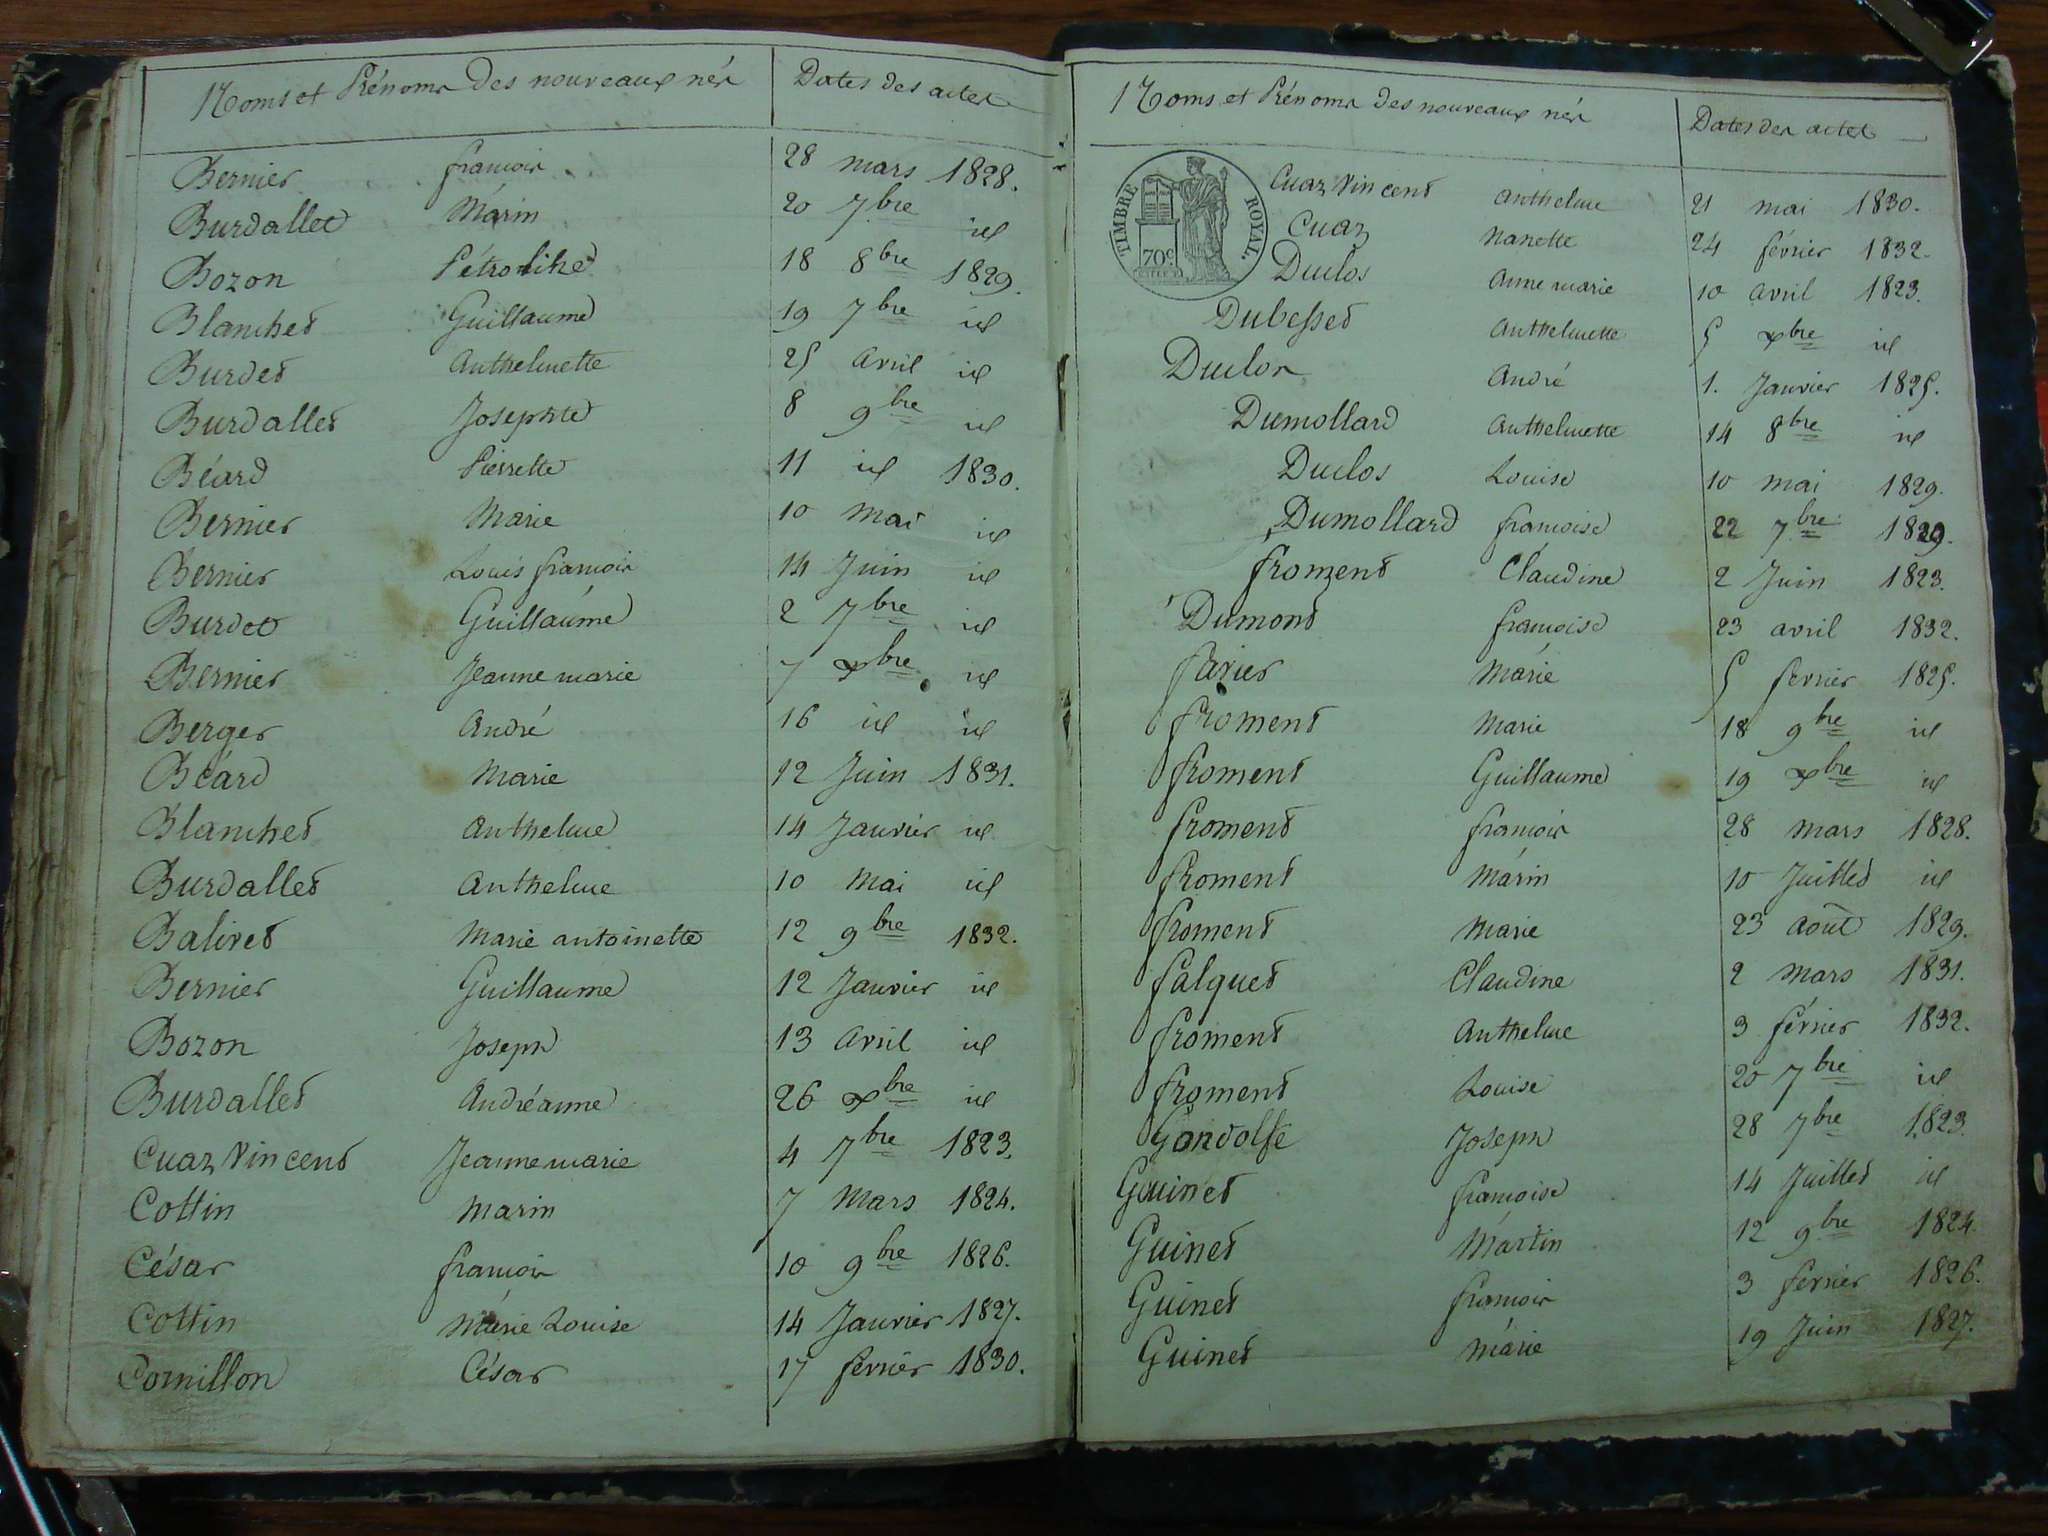 Noms et Prénoms des nouveaux nés Dates des actes
Bernier françois 28 mars 1828.
Burdallet Marin 20 7bre id
Bozon Pétronille 18 8bre 1829.
Blanchet Guillaume 19 7bre id
Burdet Anthelmette 25 Avril id
Burdallet Josephte 8 9bre id
Béard Pierrette 11 id 1830.
Bernier Marie 10 Mai id
Bernier Louis françois 14 Juin id
Burdet Guillaume 2 7bre id
Bernier Jeanne marie 7 xbre id
Berger André 16 id id
Béard Marie 12 Juin 1831.
Blanchet Anthelme 14 Janvier id
Burdallet Anthelme 10 Mai id
Balivet Marie antoinette 12 9bre 1832.
Bernier Guillaume 12 Janvier id
Bozon Joseph 13 Avril id
Burdallet Andréanne 26 xbre id
Cuaz Vincent Jeanne marie 4 7bre 1823.
Cottin Marin 7 Mars 1824.
César françois 10 9bre 1826.
Cottin Marie Louise 14 Janvier 1827.
Cornillon César 17 fevrier 1830.
Noms et Prénoms des nouveaux nés Dates des actes
TIMBRE ROYAL.
70c
Cuaz Vincent Anthelme 21 mai 1830.
Cuaz Nanette 24 février 1832.
Duclos Anne marie 10 Avril 1823.
Dubesset Anthelmette 5 xbre id
Duclos André 1. Janvier 1825.
Dumollard Anthelmette 14 8bre id
Duclos Louise 10 mai 1829.
Dumollard françoise 22 7bre 1829.
froment Claudine 2 Juin 1823.
Dumont françoise 23 avril 1832.
favier Marie 5 fevrier 1825.
froment Marie 18 9bre id
froment Guillaume 19 xbre id
froment françois 28 Mars 1828.
froment Marin 10 Juillet id
froment Marie 23 Août 1829.
falquet Claudine 2 Mars 1831.
froment Anthelme 3 février 1832.
froment Louise 20 7bre id
Gandolfe Joseph 28 7bre 1823.
Guinet françoise 14 Juillet id
Guinet Martin 12 9bre 1824.
Guinet françois 3 fevrier 1826.
Guinet Marie 19 Juin 1827.